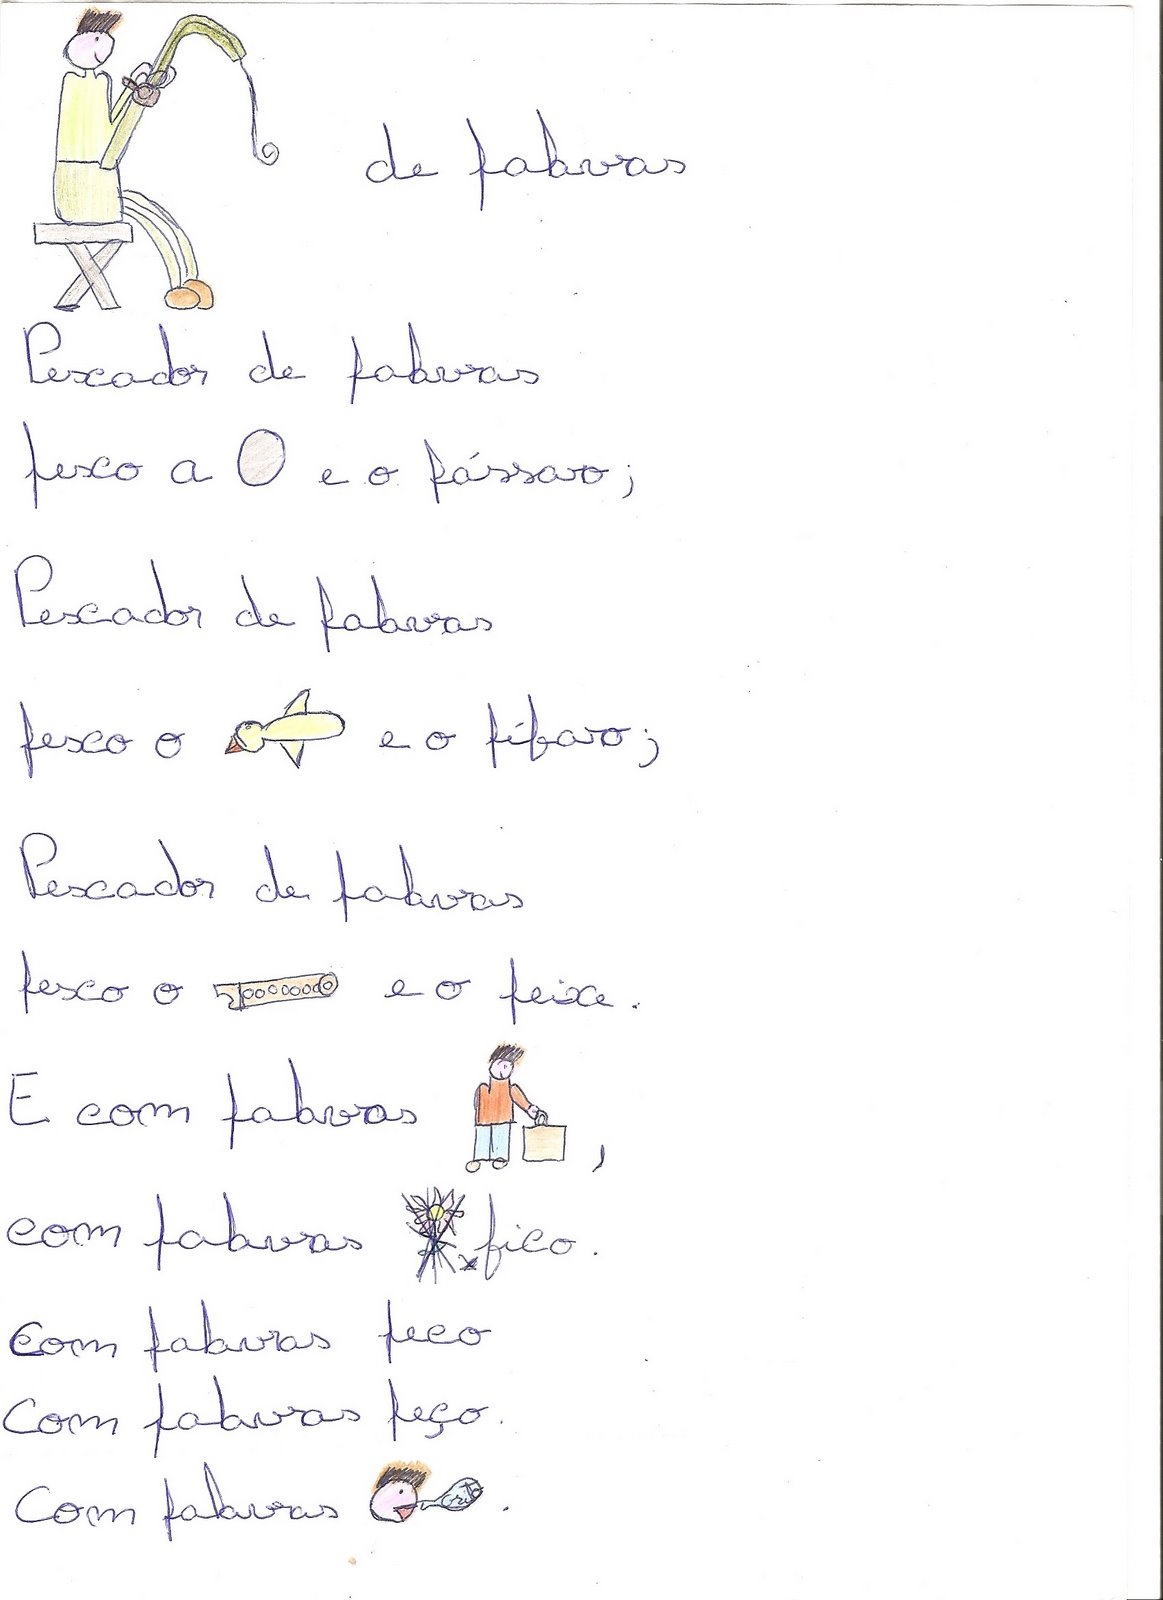 de palavras
Pescador de palavras
pesco a e o pássaro;
Pescador de palavras
pesco o e o pífaro;
Pescador de palavras
pesco o e o peixe.
E com palavras ,
com palavras fico.
com palavras peco
Com palavras peço.
Com palavras .